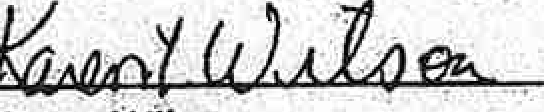 Karen Y Wilson